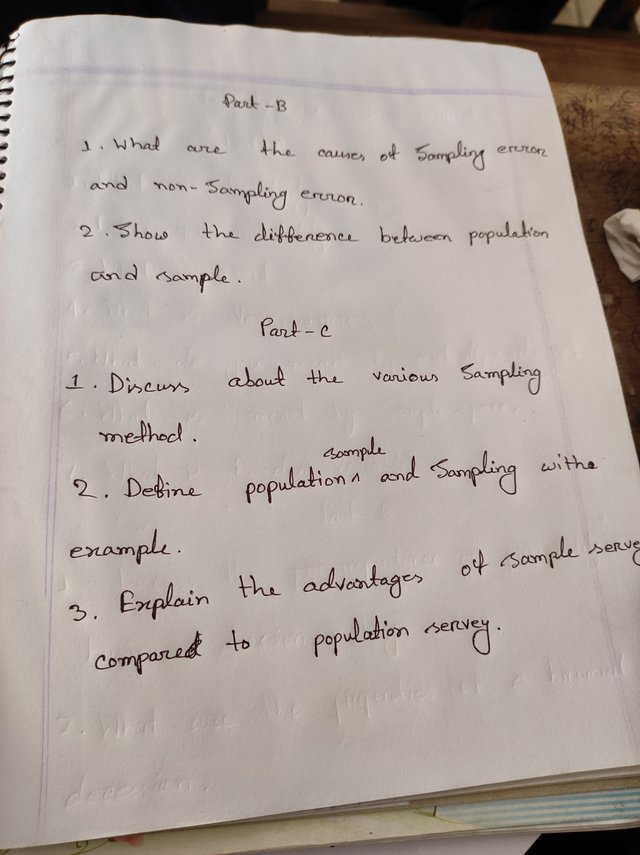 Part - B
1. What are the causes of Sampling error
and non-Sampling error.
2. Show the difference between population
and sample.
Part - C
1. Discuss about the various Sampling
method.
sample
2. Define population ^ and Sampling withe
example.
3. Explain the advantages of sample serve
compared to population servey.